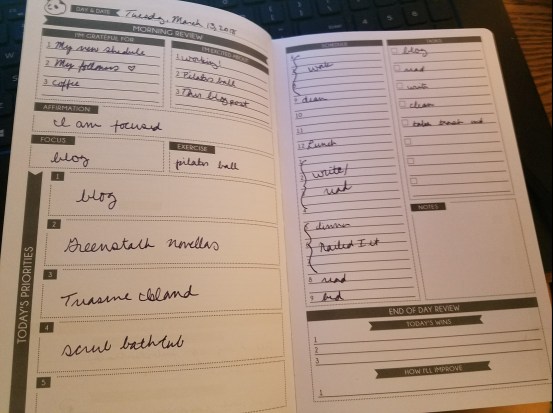 DAY & DATE Tuesday, March 13, 2018
MORNING REVIEW
I'M GRATEFUL FOR
1 My new schedule
2 My followers ♡
3 Coffee
I'M EXCITED ABOUT
1 working!
2 Pilates ball
3 This blog post
AFFIRMATION
I am focused
FOCUS
blog
EXERCISE
pilates ball
TODAY'S PRIORITIES
1
blog
2
Greenstalk novellas
3
Treasure Island
4
scrub bathtub
5
SCHEDULE
work
9 clean
10
11
12 Lunch
write/
read
dinner
Nailed It
8 read
9 bed
blog
read
write
clean
take trash out
NOTES
END OF DAY REVIEW
TODAY'S WINS
1
2
3
HOW I'LL IMPROVE
1